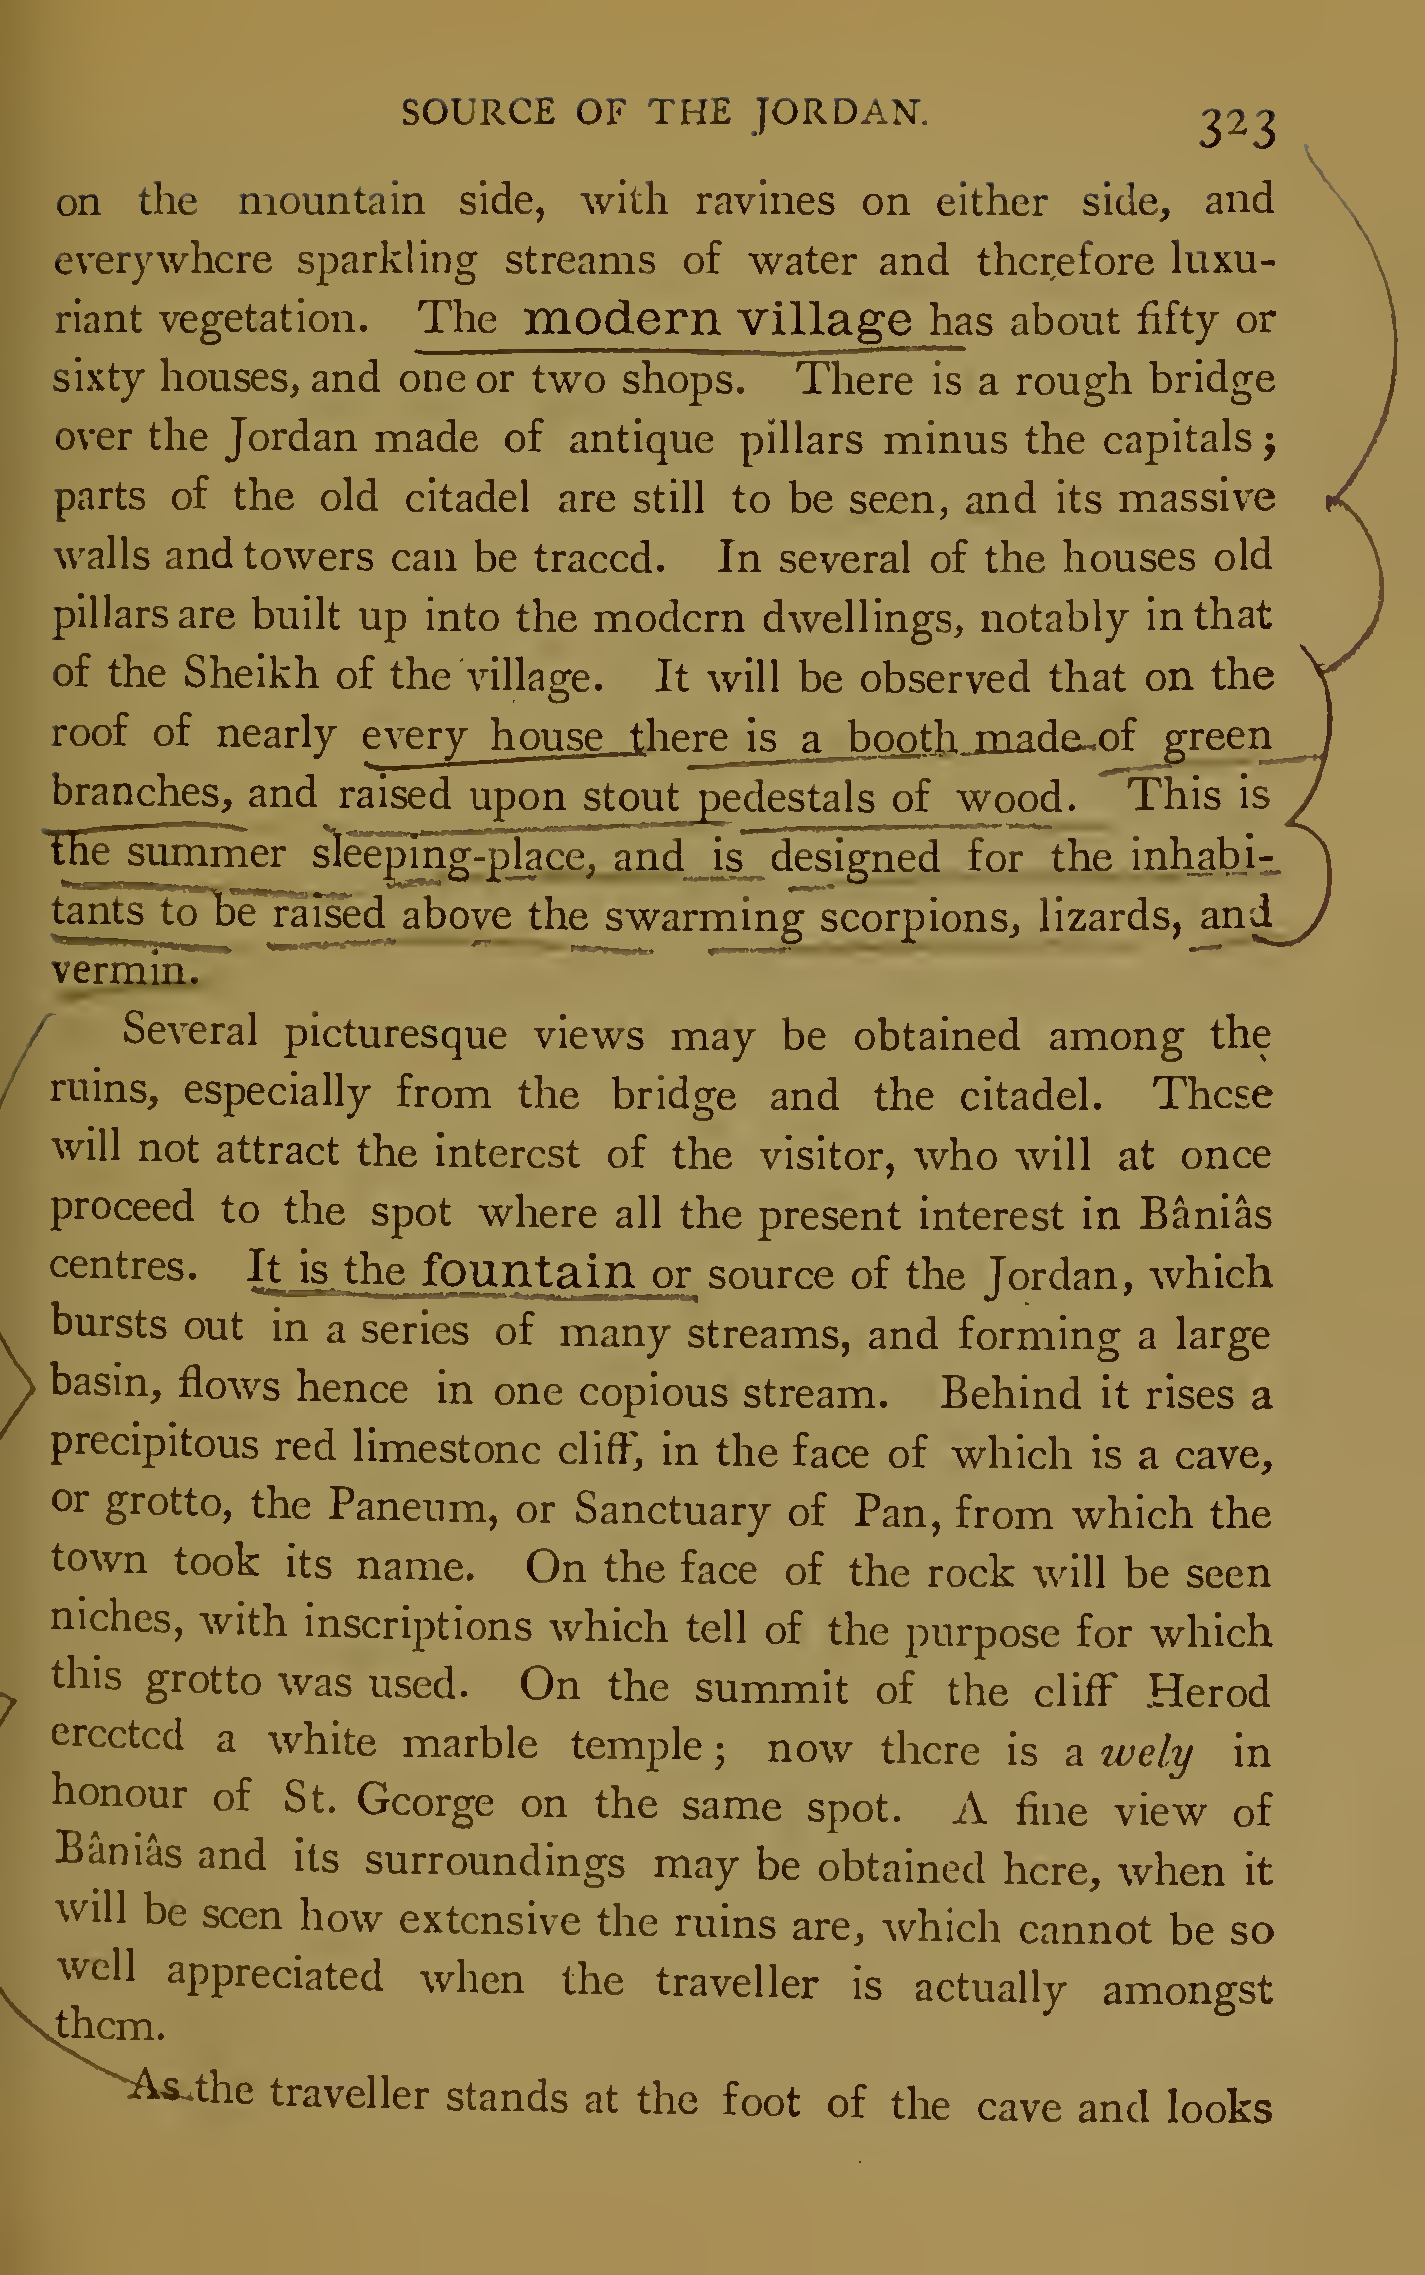 SOURCE OF THE JORDAN. 323
on the mountain side, with ravines on either side, and
everywhere sparkling streams of water and therefore luxu-
riant vegetation. The modern village has about fifty or
sixty houses, and one or two shops. There is a rough bridge
over the Jordan made of antique pillars minus the capitals;
parts of the old citadel are still to be seen, and its massive
walls and towers can be traced. In several of the houses old
pillars are built up into the modern dwellings, notably in that
of the Sheikh of the village. It will be observed that on the
roof of nearly every house there is a booth made of green
branches, and raised upon stout pedestals of wood. This is
the summer sleeping-place, and is designed for the inhabi-
tants to be raised above the swarming scorpions, lizards, and
vermin.
Several picturesque views may be obtained among the
ruins, especially from the bridge and the citadel. These
will not attract the interest of the visitor, who will at once
proceed to the spot where all the present interest in Bâniâs
centres. It is the fountain or source of the Jordan, which
bursts out in a series of many streams, and forming a large
basin, flows hence in one copious stream. Behind it rises a
precipitous red limestone cliff, in the face of which is a cave,
or grotto, the Paneum, or Sanctuary of Pan, from which the
town took its name. On the face of the rock will be seen
niches, with inscriptions which tell of the purpose for which
this grotto was used. On the summit of the cliff Herod
erected a white marble temple; now there is a wely in
honour of St. George on the same spot. A fine view of
Bâniâs and its surroundings may be obtained here, when it
will be seen how extensive the ruins are, which cannot be so
well appreciated when the traveller is actually amongst
them.
As the traveller stands at the foot of the cave and looks